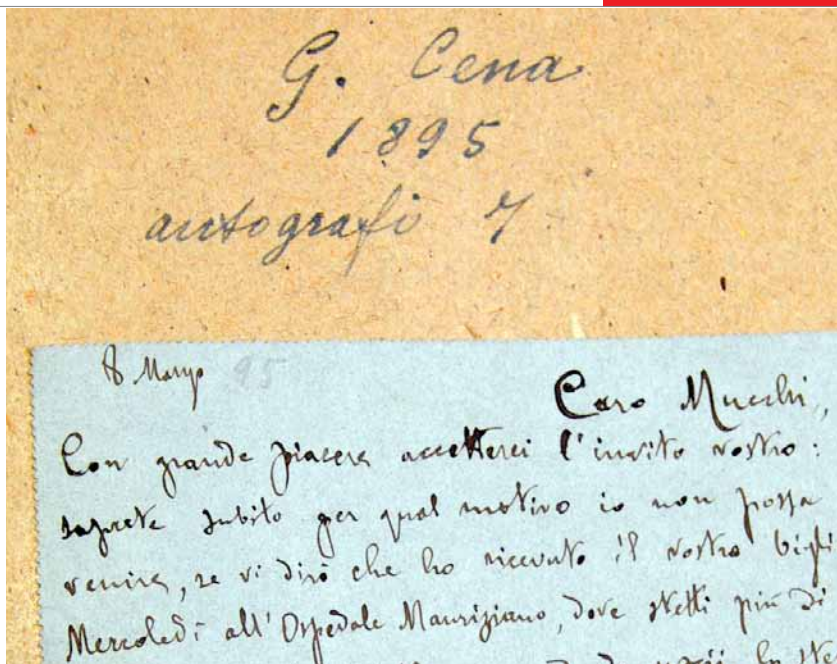 G. Cena
1895
autografi 7
8 Marzo 95
Caro Mucchi,
Con grande piacere accetterei l'invito vostro:
saprete subito per qual motivo io non possa
venire, se vi dirò che ho ricevuto il vostro bigli
Mercoledì all'Ospedale Mauriziano, dove stetti più di